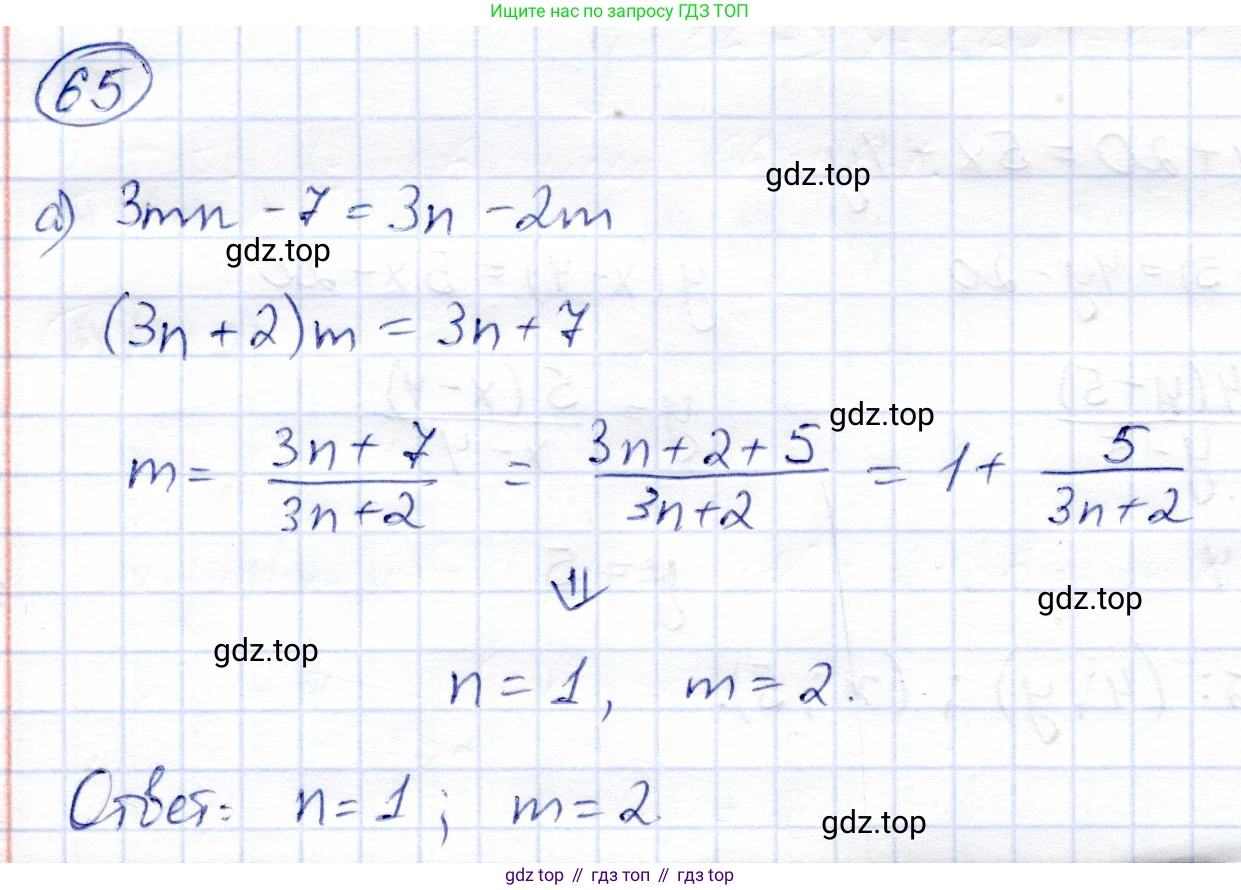 Ищите нас по запросу ГДЗ ТОП
65
gdz.top
а) 3mn - 7 = 3n - 2m
gdz.top
(3n + 2)m = 3n + 7
gdz.top
m = \frac{3n + 7}{3n + 2} = \frac{3n + 2 + 5}{3n + 2} = 1 + \frac{5}{3n + 2}
⇓
gdz.top
gdz.top
n = 1, m = 2.
Ответ: n = 1; m = 2.
gdz.top
gdz top // гдз топ // gdz top